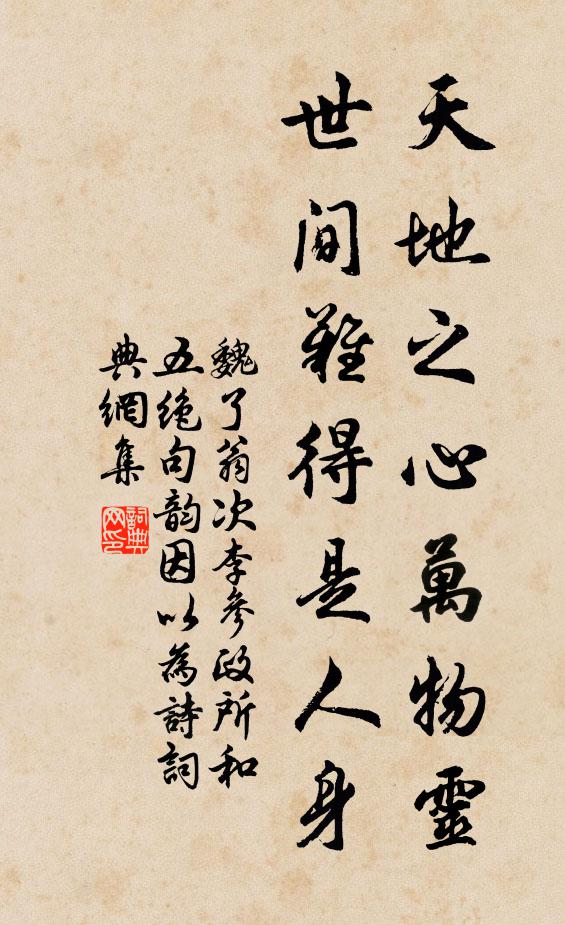 天地之心萬物靈
世間難得是人身
魏了翁次李參政所和
五絕句韵因以為詩詞
典網集
詞典網印